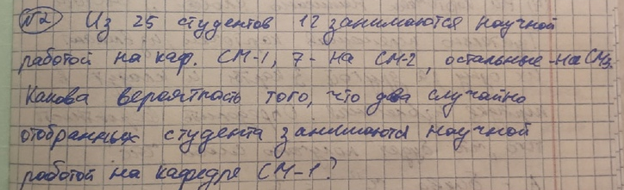 №2 Из 25 студентов 12 занимаются научной
работой на каф. СМ-1, 7- на СМ-2, остальные-на СМ3.
Какова вероятность того, что два случайно
отобранных студента занимаются научной
работой на кафедре СМ-1?